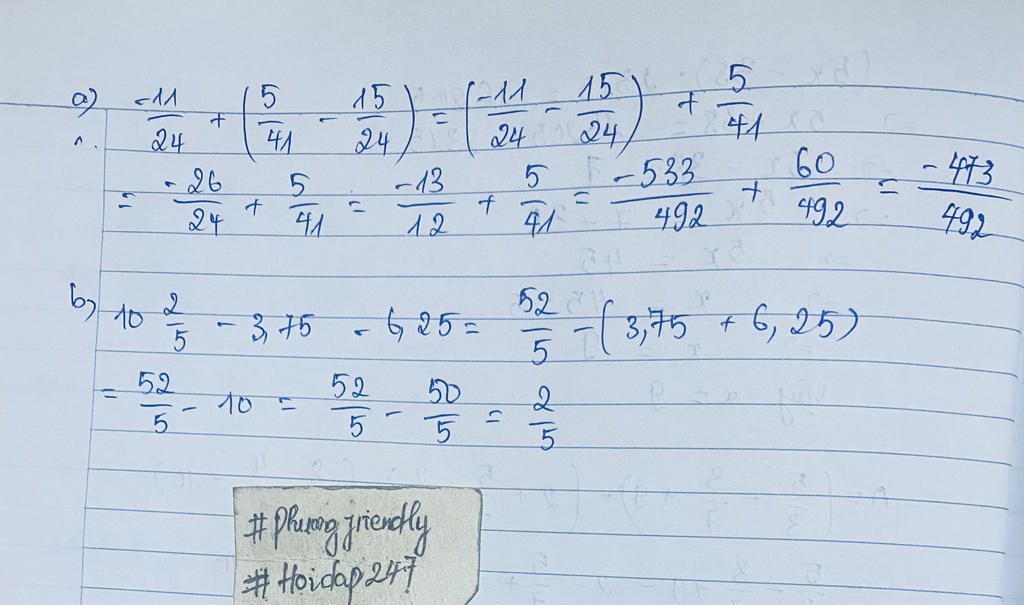 a) -11/24 + (5/41 - 15/24) = (-11/24 - 15/24) + 5/41
= -26/24 + 5/41 = -13/12 + 5/41 = -533/492 + 60/492 = -473/492
b) 10 2/5 - 3,75 - 6,25 = 52/5 - (3,75 + 6,25)
= 52/5 - 10 = 52/5 - 50/5 = 2/5
# Phuong friendly
# Hoidap247